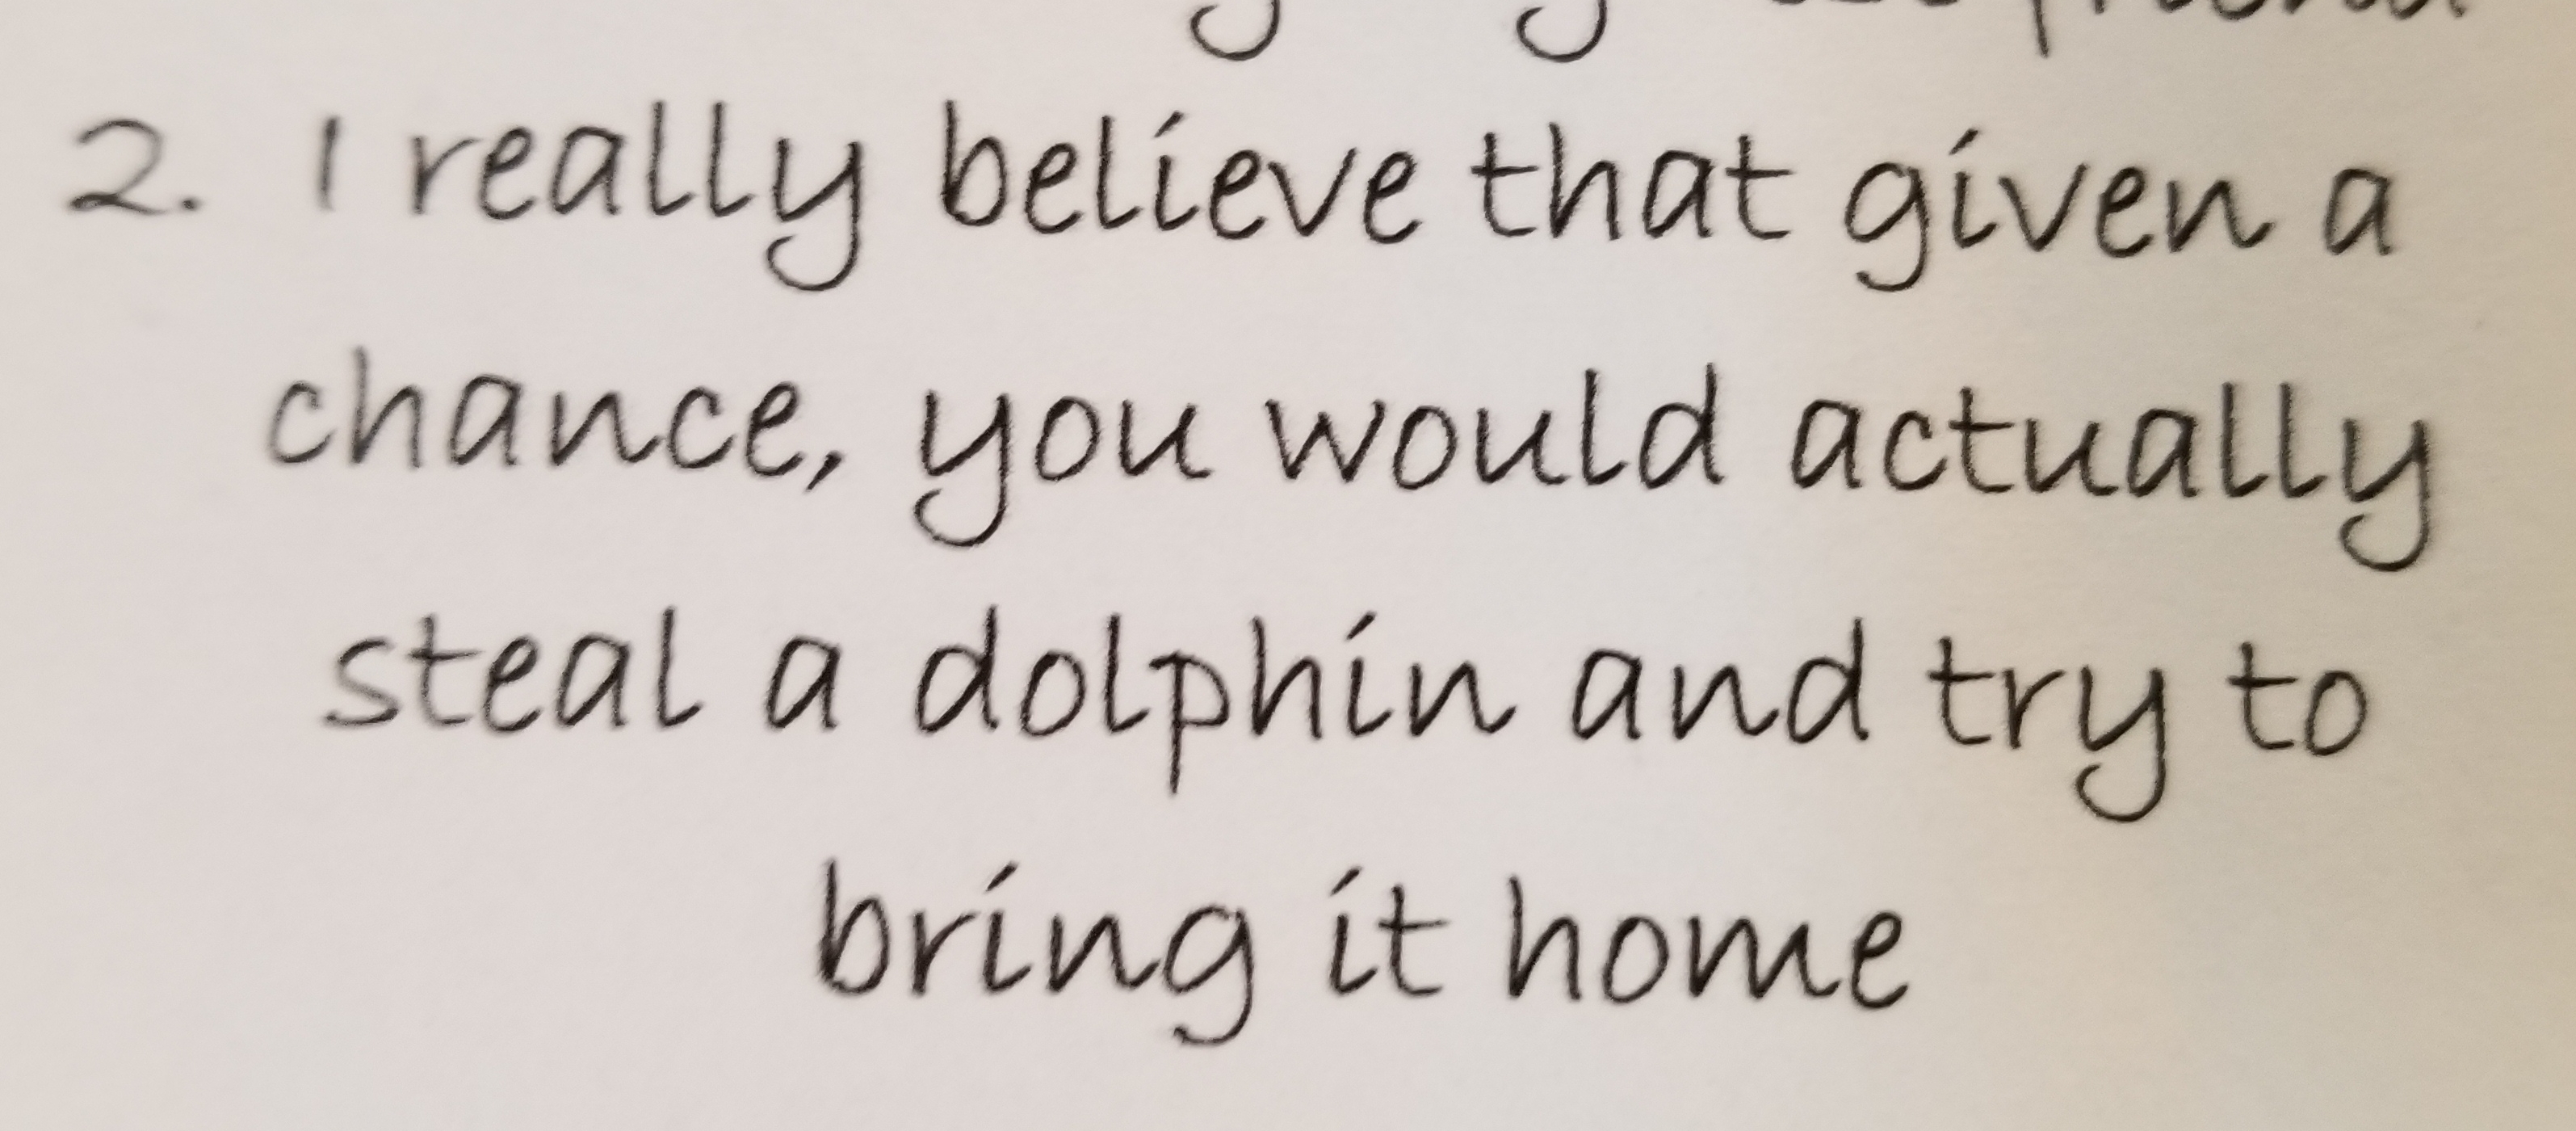 2. I really believe that given a
chance, you would actually
steal a dolphin and try to
bring it home